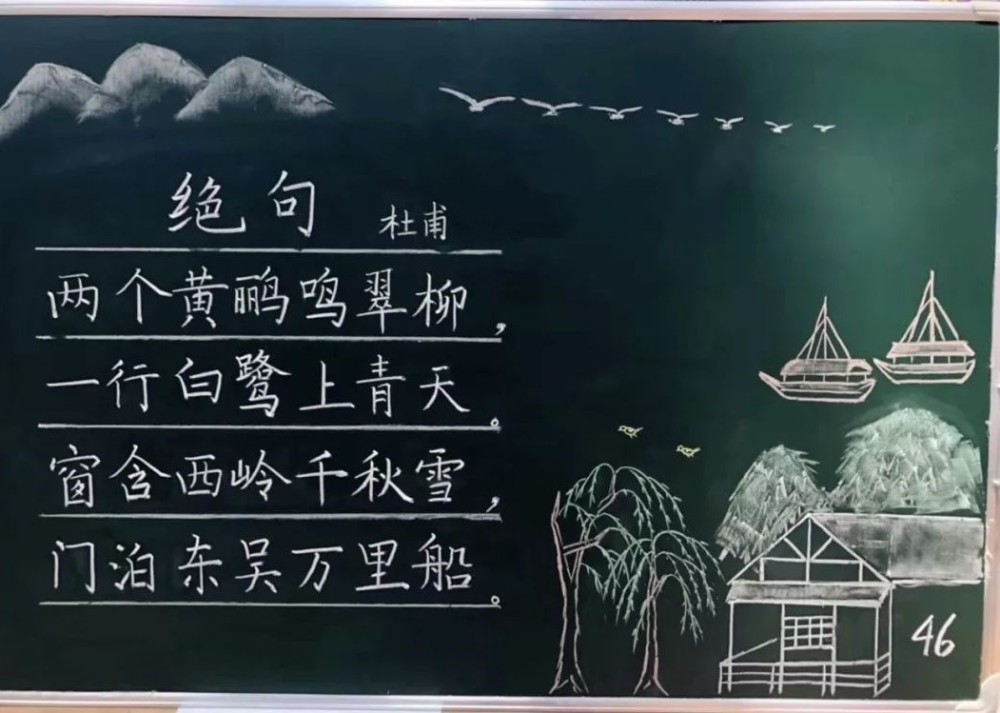 绝句 杜甫
两个黄鹂鸣翠柳，
一行白鹭上青天。
窗含西岭千秋雪，
门泊东吴万里船。
46